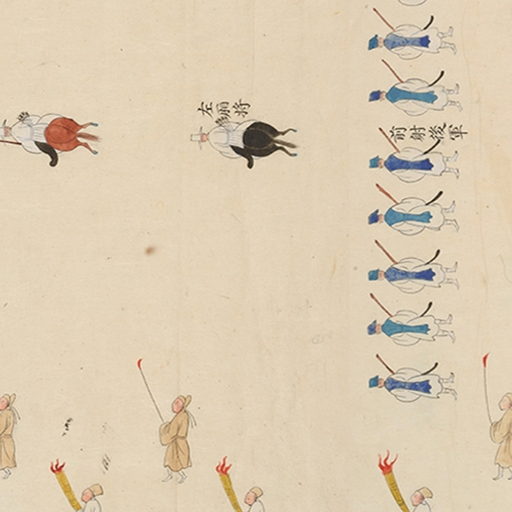 左廂將
前射後軍